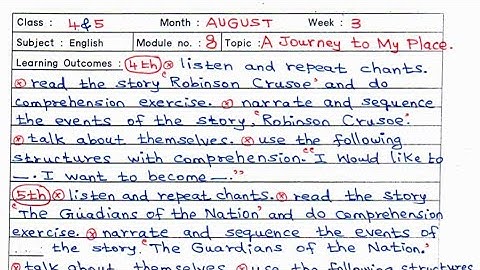 Class : 4&5 Month : AUGUST Week : 3
Subject : English Module no. : 8 Topic : A Journey to My Place.
Learning Outcomes : 4th ⊗ listen and repeat chants.
⊗ read the story "Robinson Crusoe" and do
comprehension exercise. ⊗ narrate and sequence
the events of the story, "Robinson Crusoe".
⊗ talk about themselves. ⊗ use the following
structures with comprehension. "I would like to
—. I want to become —."
5th ⊗ listen and repeat chants. ⊗ read the story
"The Guadians of the Nation" and do comprehension
exercise. ⊗ narrate and sequence the events of
the story. "The Guardians of the Nation."
⊗ talk about themselves. ⊗ use the following structures